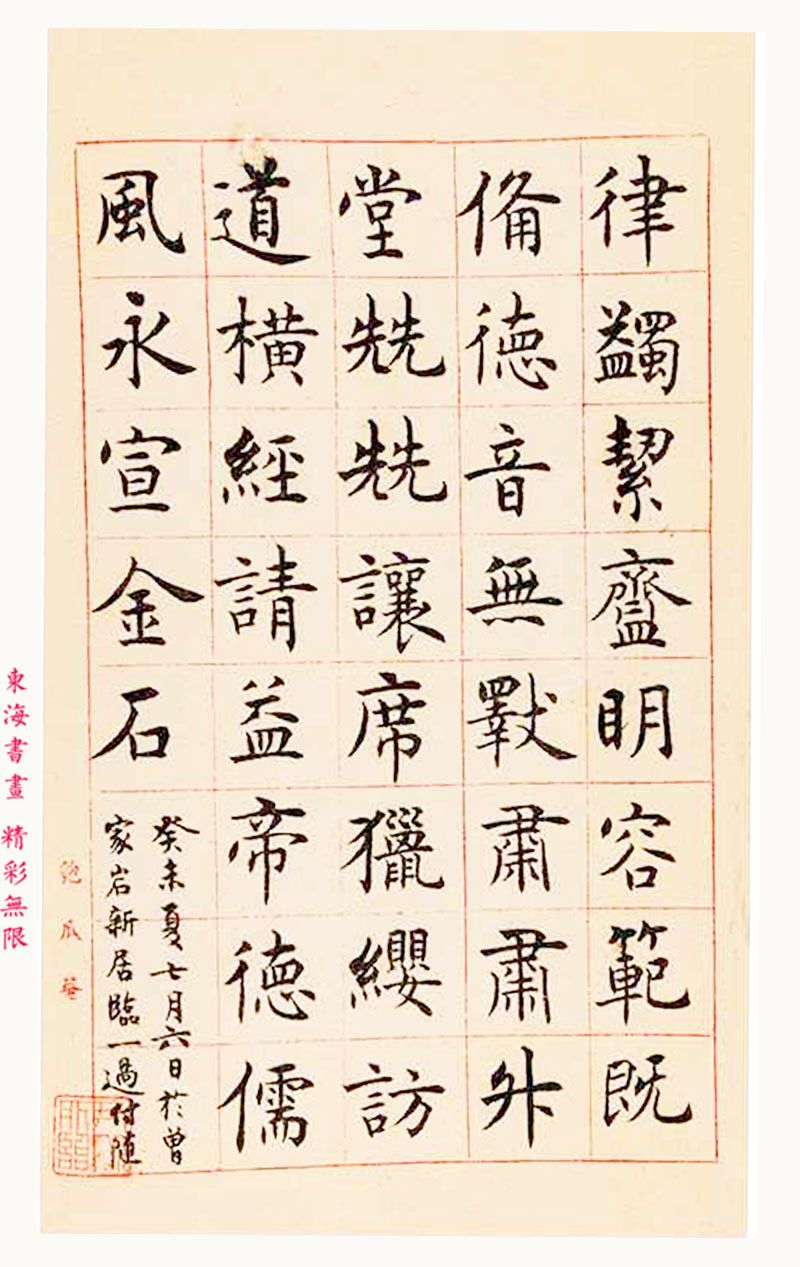 律蠲絜齍明容範既
俻德音無斁肅肅外
堂兟兟讓席獵纓訪
道横經請益帝德儒
風永宣金石
癸未夏七月六日於曾
家岩新居臨一過付随
匏瓜菴
東海書畫 精彩無限